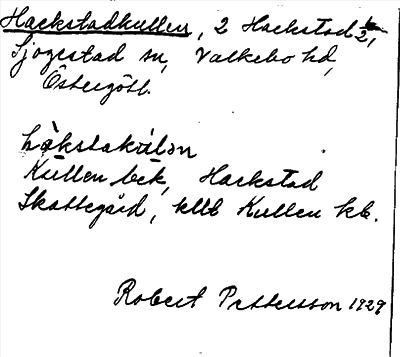 Hackstadkullen, 2 Hackstad 2,
Sjögestad sn, Valkebo hd,
Östergötl.
hạ̀kstakúlən
Kullen bek, Hackstad
Skattegård, kllt Kullen kb.
Robert Pettersson 1929